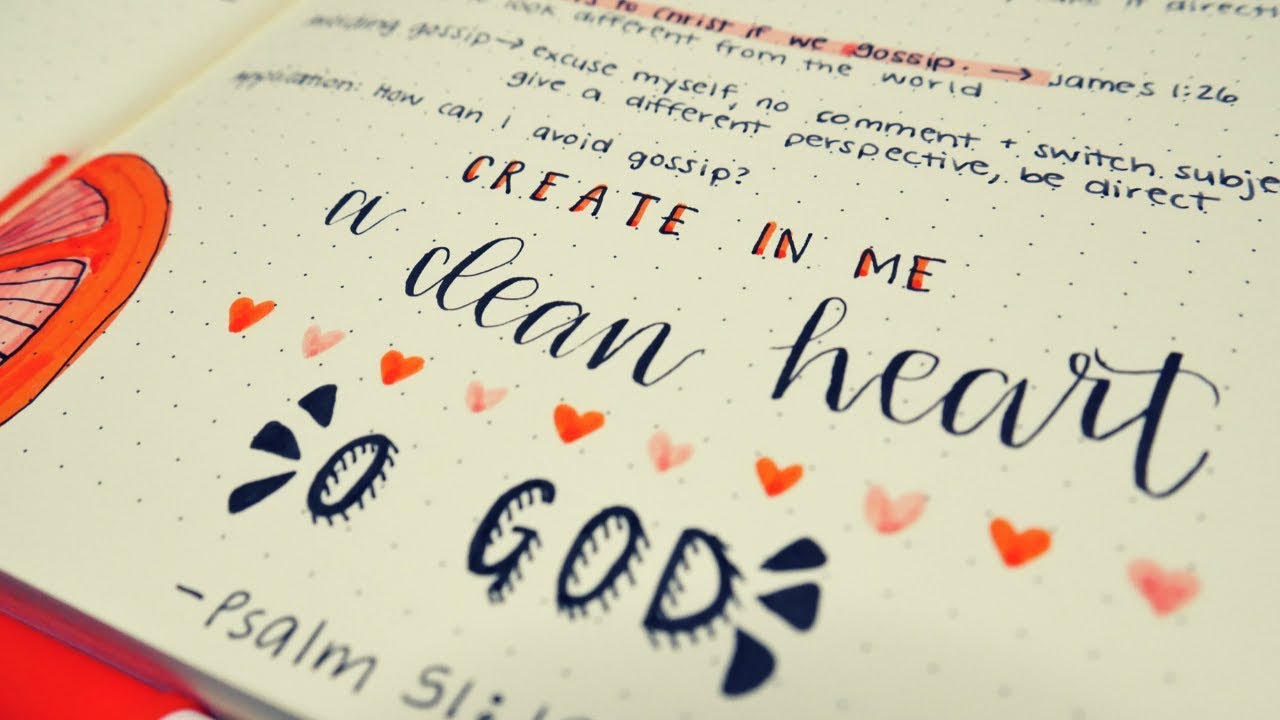 it directi
to Christ if we gossip. → James 1:26
look different from the world
avoiding gossip → excuse myself, no comment + switch subje
give a different perspective, be direct
application: How can I avoid gossip?
CREATE IN ME
a clean heart
O GOD
-Psalm 51:10